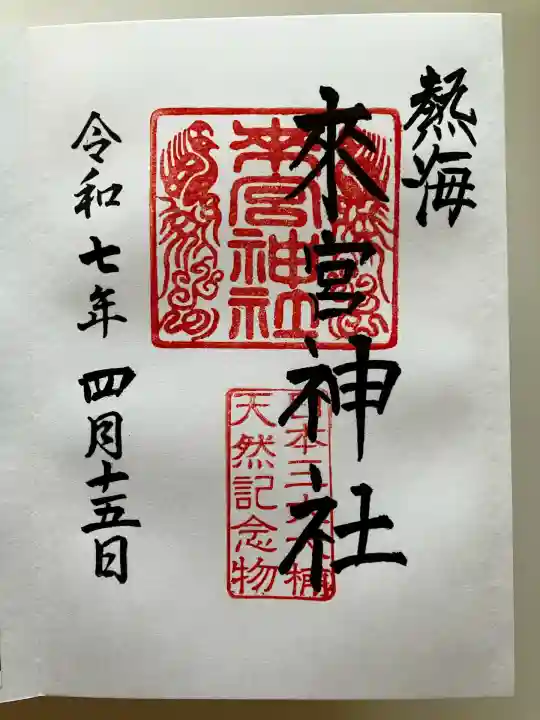 熱海
來宮神社
來宮神社
日本三大大楠
天然記念物
令和七年 四月十五日